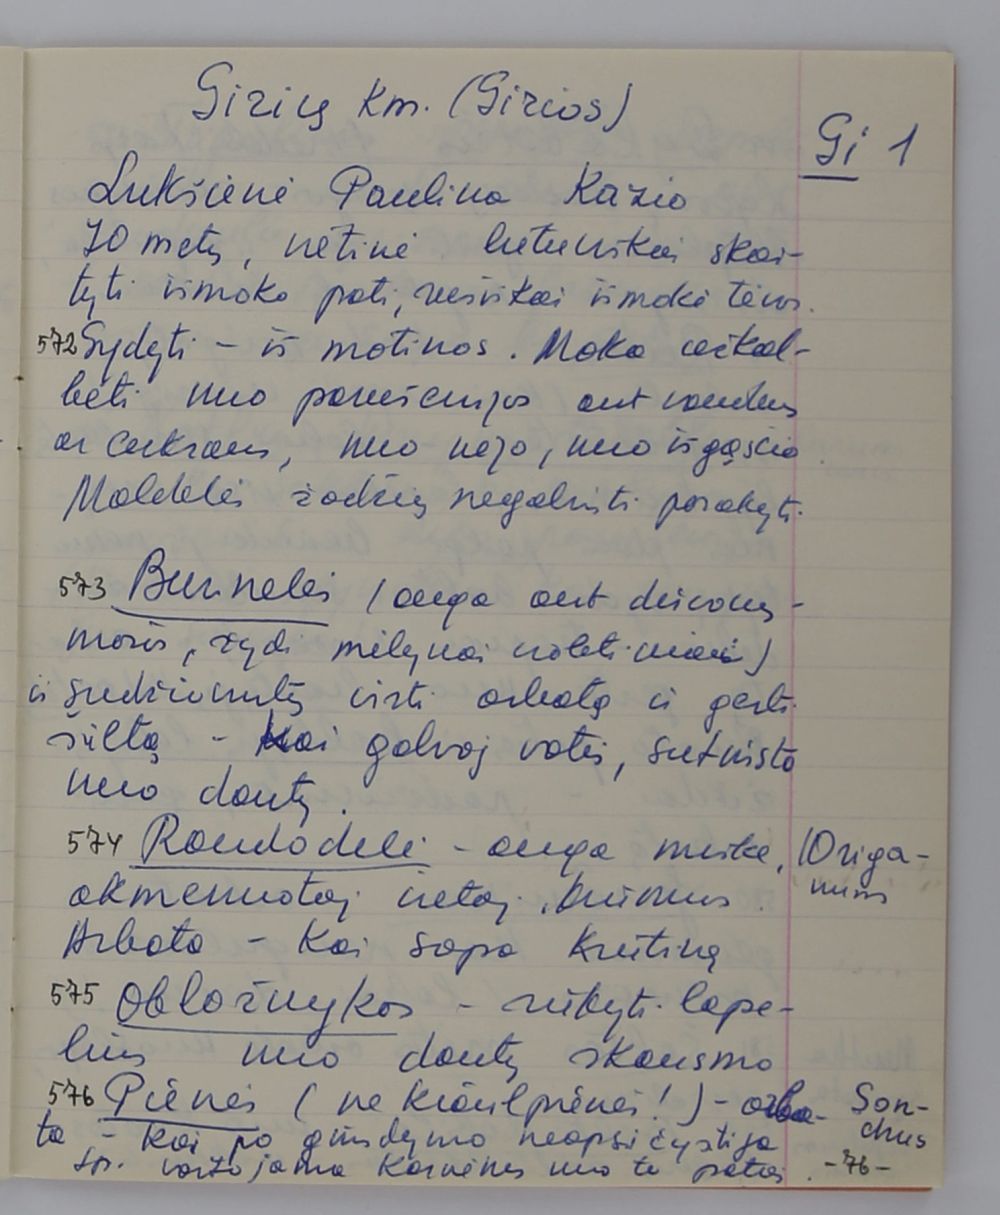 Girių km. (Girios)
Gi 1
Lukšienė Paulina Kazio
70 metų, vietinė lietuviškai skai-
tyti išmoko pati, rusiškai išmokė tėvas.
572 Gydyti – iš motinos. Moka užkal-
bėti nuo pamėsiunijos ant vandens
ar cukraus, nuo rožo, nuo išgąsčio.
Maldelės žodžių negalinti pasakyti.
573 Burnelės (auga ant dirvonų-
mosis, žydi mėlynai violetiniai)
iš sudžiovintų virti arbatą ir gerti
šiltą – kai galvoj votis, sutvisto
nuo dantų.
574 Raudodėlė – auga miške, /Origa-
akmenuotoj vietoj. krūmus. num
Arbata – kai sopa krūtinę
575 Obložnykas – rūkyti lape-
lius nuo dantų skausmo
576 Pienės (ne kiaulpienės!) – arba- Son-
ta – kai po gimdymo neapsičystija chus
ir. vartojama karvėms nuo to paties. -76-